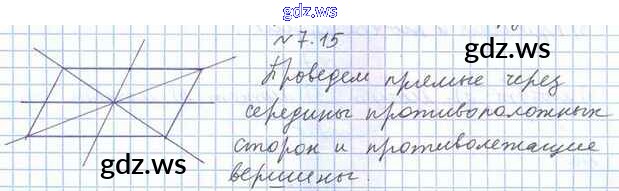 gdz.ws
№ 7.15
gdz.ws
Проведем прямые через
середины противоположных
сторон и противолежащие
gdz.ws
вершины.